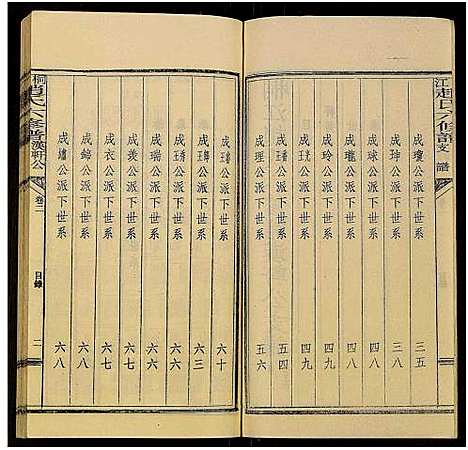 江趙氏六修譜 支譜
成瓊公派下世系 三五
成珅公派下世系 三八
成球公派下世系 四八
成瓏公派下世系 四八
成玲公派下世系 四九
公派下世系 四九
公派下世系 五四
成理公派下世系 五六
公派下世系 六十
公派下世系 六三
公派下世系 六六
成瑞公派下世系 六六
成羨公派下世系 六七
成衣公派下世系 六七
成錦公派下世系 六八
成璠公派下世系 六八
桐趙氏六修譜漢軒公 卷二 目錄 二